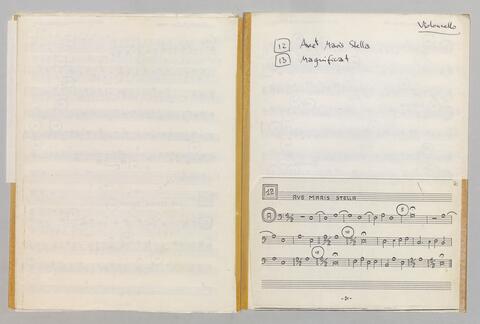 Violoncello
12 Ave Maris Stella
13 Magnificat
12
AVE MARIS STELLA
A
5
10